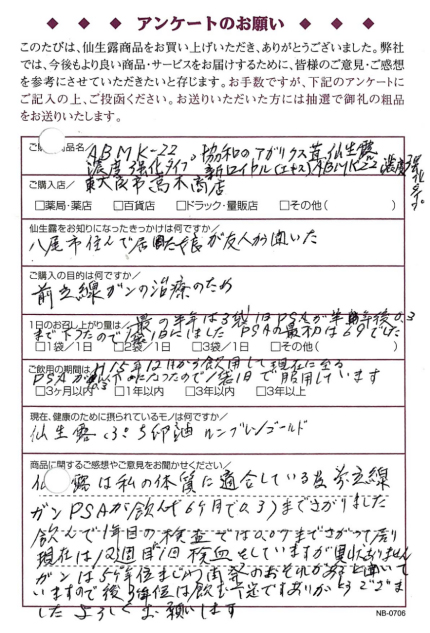 ◆ ◆ ◆ アンケートのお願い ◆ ◆ ◆
このたびは、仙生露商品をお買い上げいただき、ありがとうございました。弊社
では、今後もより良い商品・サービスをお届けするために、皆様のご意見・ご感想
を参考にさせていただきたいと存じます。お手数ですが、下記のアンケートに
ご記入の上、ご投函ください。お送りいただいた方には抽選で御礼の粗品
をお送りいたします。
品名／ABMK-22 協和のアガリクス茸仙生露
濃度強化タイプ。新ロイヤル(エキス)ABMK22 濃度強化タイプ。
ご購入店／東大阪市高木商店
□薬局・薬店 □百貨店 □ドラッグ・量販店 □その他( )
仙生露をお知りになったきっかけは何ですか／
八尾市住んで居た娘が友人から聞いた
ご購入の目的は何ですか／
前立線ガンの治療のため
1日のお召し上がり量は／最初の半年は3袋1日PSAが半年後0.3
まで下ったので1袋1日にしました PSAの最初は69でした
□1袋/1日 □2袋/1日 □3袋/1日 □その他( )
ご飲用の期間は／H15年12月から飲用して現在に至る
PSAが以下のになったので1袋1日で服用しています
□3ヶ月以内 □1年以内 □3年以内 □3年以上
現在、健康のために摂られているモノは何ですか／
仙生露 ルンブレンゴールド
商品に関するご感想やご意見をお聞かせください／
仙生露は私の体質に適合している為前立線
ガンPSAが飲んで6ヶ月で0.3)までさがりました
飲んで1年目の検査では0.07までさがって居り
現在は1回検血をしていますが異状ありません
ガンは5年位まで再発のおそれがあると聞いて
いますので後3年位は飲む予定ですありがとうござま
した よろしくお願いします
NB-0706